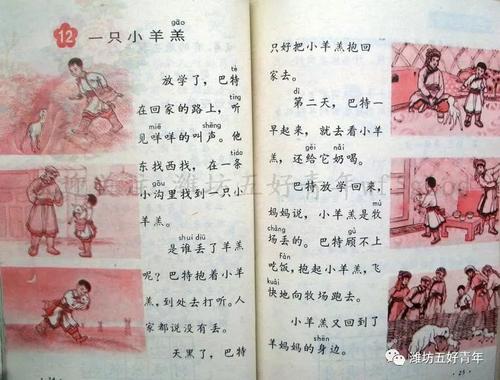 12 一只小羊羔
gāo
tè
放学了，巴特
tíng
在回家的路上，听
miē shēng
见咩咩的叫声。他
东找西找，在一条
gōu
小沟里找到一只小
羊羔。
shuí diū
是谁丢了羊羔
呢？巴特抱着小羊
羔，到处去打听。人
家都说没有丢。
天黑了，巴特
只好把小羊羔抱回
家去。
dì
第二天，巴特一
早起来，就去看小羊
gěi nǎi
羔，还给它奶喝。
巴特放学回来，
mù
妈妈说，小羊羔是牧
chǎng gù
场丢的。巴特顾不上
fàn
吃饭，抱起小羊羔，飞
kuài
快地向牧场跑去。
小羊羔又回到了
shēn
羊妈妈的身边。
·25·
潍坊五好青年